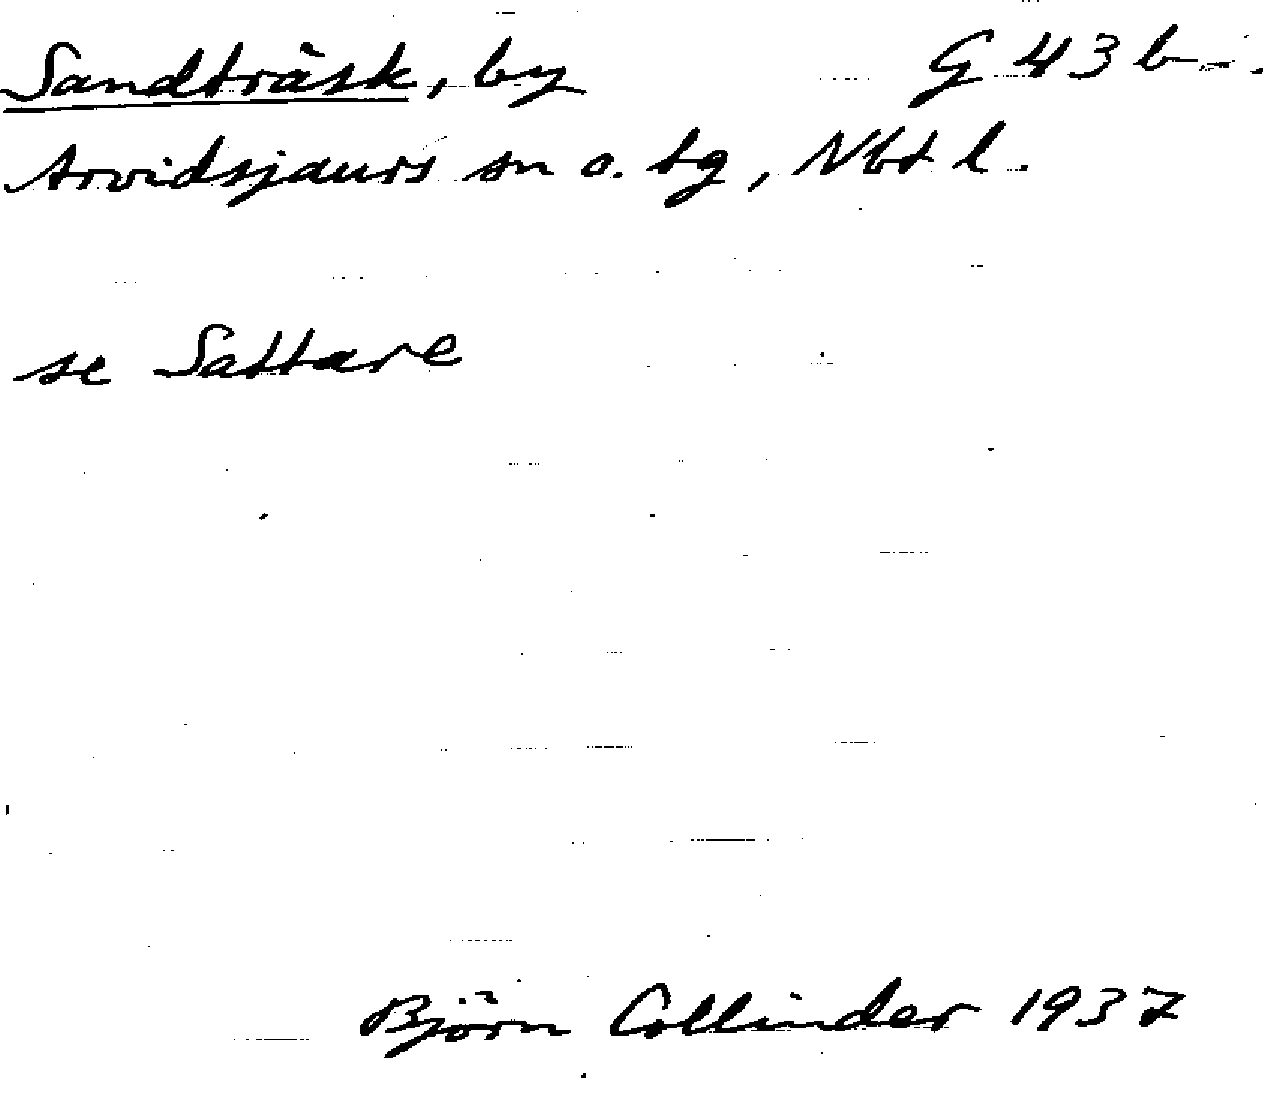 Sandträsk, by G 43 b
Arvidsjaurs sn o. tg, Nbt l.
se Sattare
Björn Collinder 1937